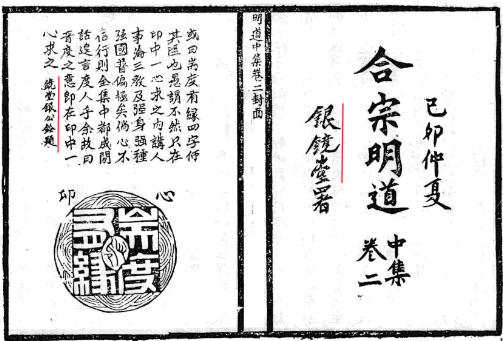 己卯仲夏
合宗明道
中集
卷二
銀鏡臺署
明道中集卷二封面
或曰度有緣四字何
其隘也愚謂不然只在
印中一心求之内講人
事海三教及强身强種
强國皆偏極矣倘心不
信行則全集中都成閑
話遑言度人乎余故曰
普度之意即在印中一
心求之 題
心印
度有緣